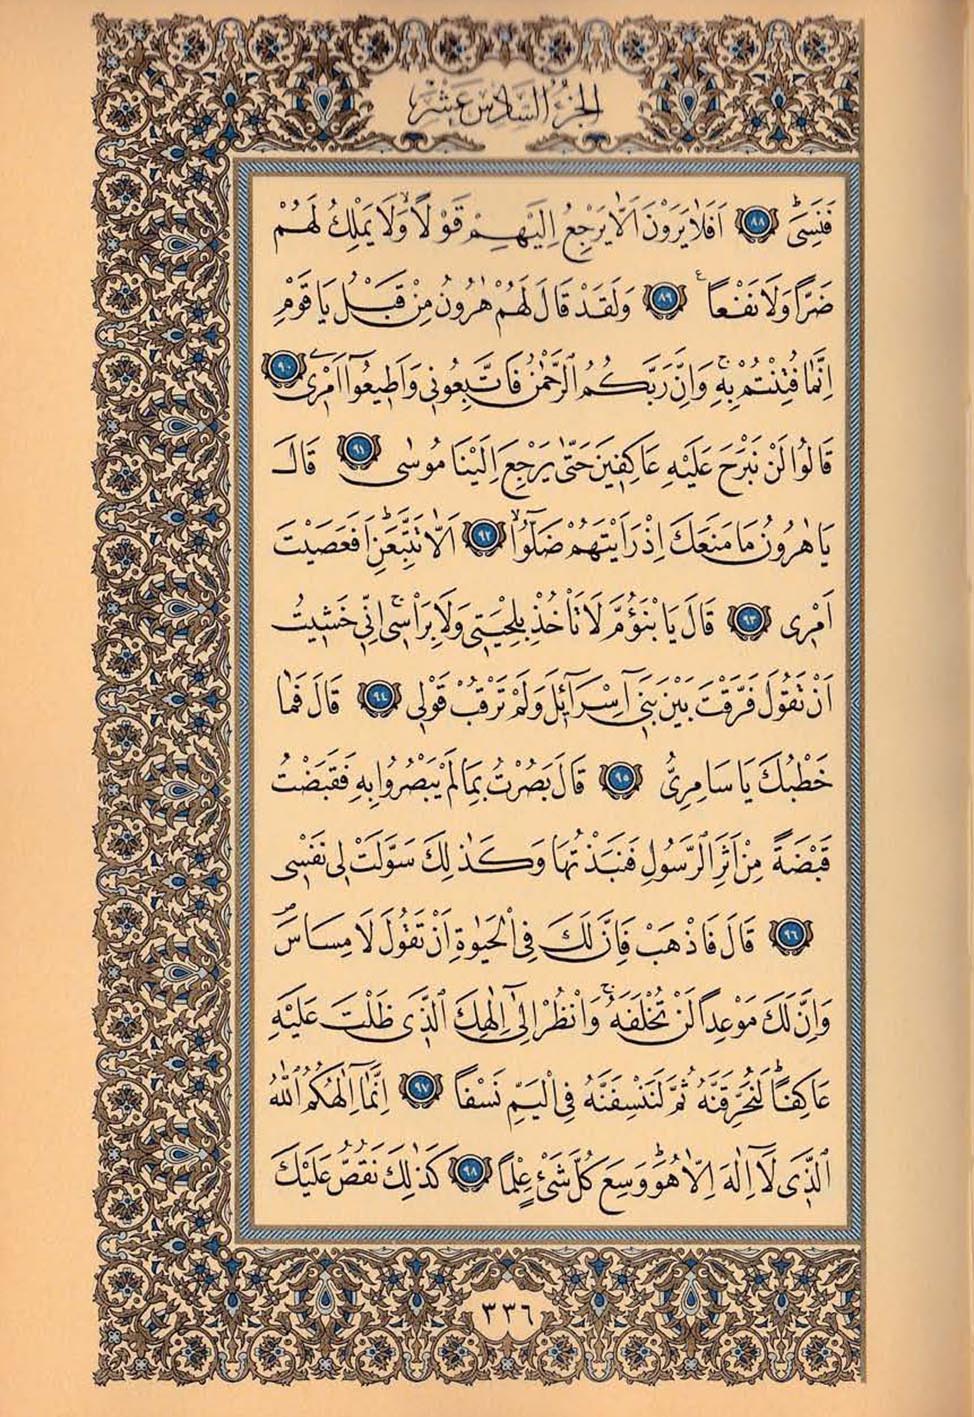 الجزء السادس عشر
فَنَسِيَۜ ﴿٨٨﴾ اَفَلَا يَرَوْنَ اَلَّا يَرْجِعُ اِلَيْهِمْ قَوْلًاۙ وَلَا يَمْلِكُ لَهُمْ
ضَرًّا وَلَا نَفْعًا۟ ﴿٨٩﴾ وَلَقَدْ قَالَ لَهُمْ هٰرُونُ مِنْ قَبْلُ يَا قَوْمِ
اِنَّمَا فُتِنْتُمْ بِه۪ۚ وَاِنَّ رَبَّكُمُ الرَّحْمٰنُ فَاتَّبِعُون۪ي وَاَط۪يعُٓوا اَمْر۪ي ﴿٩٠﴾
قَالُوا لَنْ نَبْرَحَ عَلَيْهِ عَاكِف۪ينَ حَتّٰى يَرْجِعَ اِلَيْنَا مُوسٰى ﴿٩١﴾ قَالَ
يَا هٰرُونُ مَا مَنَعَكَ اِذْ رَاَيْتَهُمْ ضَلُّٓواۙ ﴿٩٢﴾ اَلَّا تَتَّبِعَنِۜ اَفَعَصَيْتَ
اَمْر۪ي ﴿٩٣﴾ قَالَ يَا بْنَؤُمَّ لَا تَأْخُذْ بِلِحْيَت۪ي وَلَا بِرَأْس۪يۚ اِنّ۪ي خَش۪يتُ
اَنْ تَقُولَ فَرَّقْتَ بَيْنَ بَن۪ٓي اِسْرَٓائ۪لَ وَلَمْ تَرْقُبْ قَوْل۪ي ﴿٩٤﴾ قَالَ فَمَا
خَطْبُكَ يَا سَامِرِيُّ ﴿٩٥﴾ قَالَ بَصُرْتُ بِمَا لَمْ يَبْصُرُوا بِه۪ فَقَبَضْتُ
قَبْضَةً مِنْ اَثَرِ الرَّسُولِ فَنَبَذْتُهَا وَكَذٰلِكَ سَوَّلَتْ ل۪ي نَفْس۪ي
﴿٩٦﴾ قَالَ فَاذْهَبْ فَاِنَّ لَكَ فِي الْحَيٰوةِ اَنْ تَقُولَ لَا مِسَاسَۖ
وَاِنَّ لَكَ مَوْعِدًا لَنْ تُخْلَفَهُۚ وَانْظُرْ اِلٰٓى اِلٰهِكَ الَّذ۪ي ظَلْتَ عَلَيْهِ
عَاكِفًاۜ لَنُحَرِّقَنَّهُ ثُمَّ لَنَنْسِفَنَّهُ فِي الْيَمِّ نَسْفًا ﴿٩٧﴾ اِنَّمَٓا اِلٰهُكُمُ اللّٰهُ
الَّذ۪ي لَٓا اِلٰهَ اِلَّا هُوَۜ وَسِعَ كُلَّ شَيْءٍ عِلْمًا ﴿٩٨﴾ كَذٰلِكَ نَقُصُّ عَلَيْكَ
٣٣٦